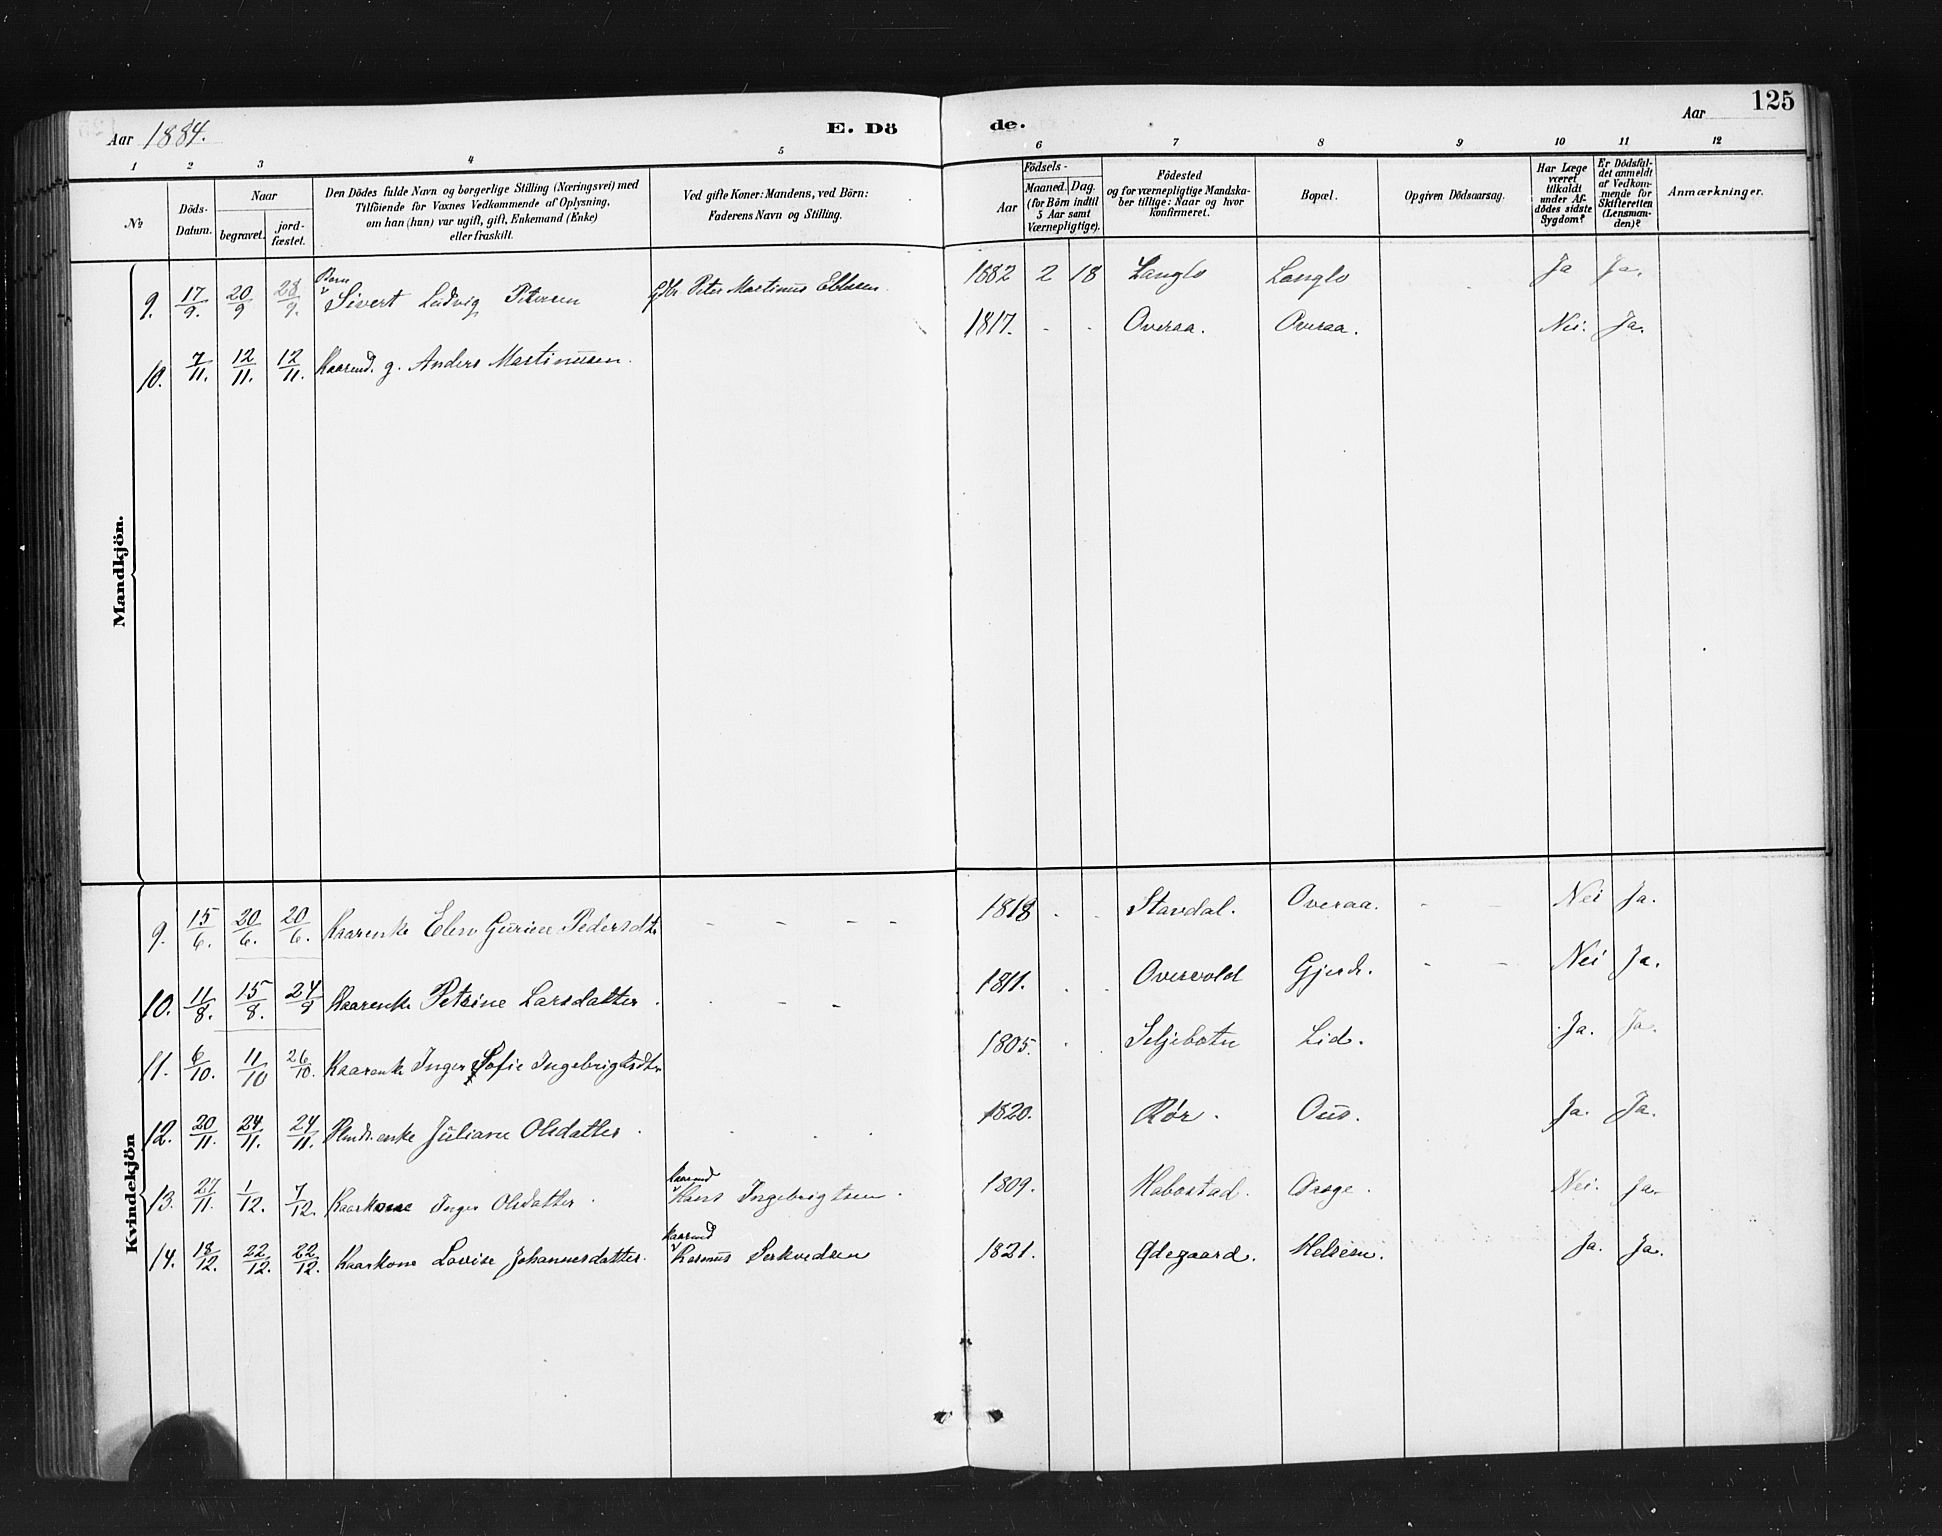 Aar 1884. E. Dö de. Aar 125
1 2 3 4 5 6 7 8 9 10 11 12
№ Döds-Datum. Naar begravet. jordfæstet.
Den Dödes fulde Navn og borgerlige Stilling (Næringsvei) med
Tilföiende for Voxnes Vedkommende af Oplysning,
om han (hun) var ugift, gift, Enkemand (Enke)
eller fraskilt.
Ved gifte Koner: Mandens, ved Börn:
Faderens Navn og Stilling.
Födsels-
Aar Maaned. Dag.
(for Börn indtil
5 Aar samt
Værnepligtige).
Födested
og for værnepligtige Mandska-
ber tillige: Naar og hvor
konfirmeret.
Bopæl.
Opgiven Dödsaarsag.
Har Læge
været
tilkaldt
under Af-
dödes sidste
Sygdom?
Er Dödsfal-
det anmeldt
af Vedkom-
mende for
Skifteretten
(Lensman-
den)?
Anmærkninger.
Mandkjön.
9. 17/9. 20/9 28/9. Barn Sivert Ludvig Petersen Gdbr. Peter Martinus Ebbesen. 1882 2 18 Langlo Langlo Ja Ja.
10. 7/11. 12/11. 12/11. Kaarmd. g. Anders Martinusen. 1817. - - Overaa. Overaa. Nei. Ja.
Kvindekjön
9. 15/6. 20/6. 20/6. Kaarenke Elen Gurine Pedersdtr - - - - 1818 . . Stavdal. Overaa. - - Nei Ja.
10. 11/8. 15/8. 24/9 Kaarenke Petrine Larsdatter . . - - 1811. . . Overvold Gjerde. - - Nei Ja.
11. 6/10. 11/10 26/10. Kaarenke Inger Sofie Ingebrigtsdtr 1805. . . Seljebotn Lid. Ja. Ja.
12. 20/11. 24/11. 24/11. enke Juliane Olsdatter . . . . 1820. Rör. Ous. Ja. Ja.
13. 27/11. 1/12. 7/12. Kaarkone Inger Olsdatter . Kaarmd Hans Ingebrigtsen . 1809. Habostad. Nei. Ja.
14. 18/12. 22/12. 22/12. Kaarkone Lovise Johannesdatter. Kaarmd Rasmus 1821. Ødegaard. Ja. Ja.